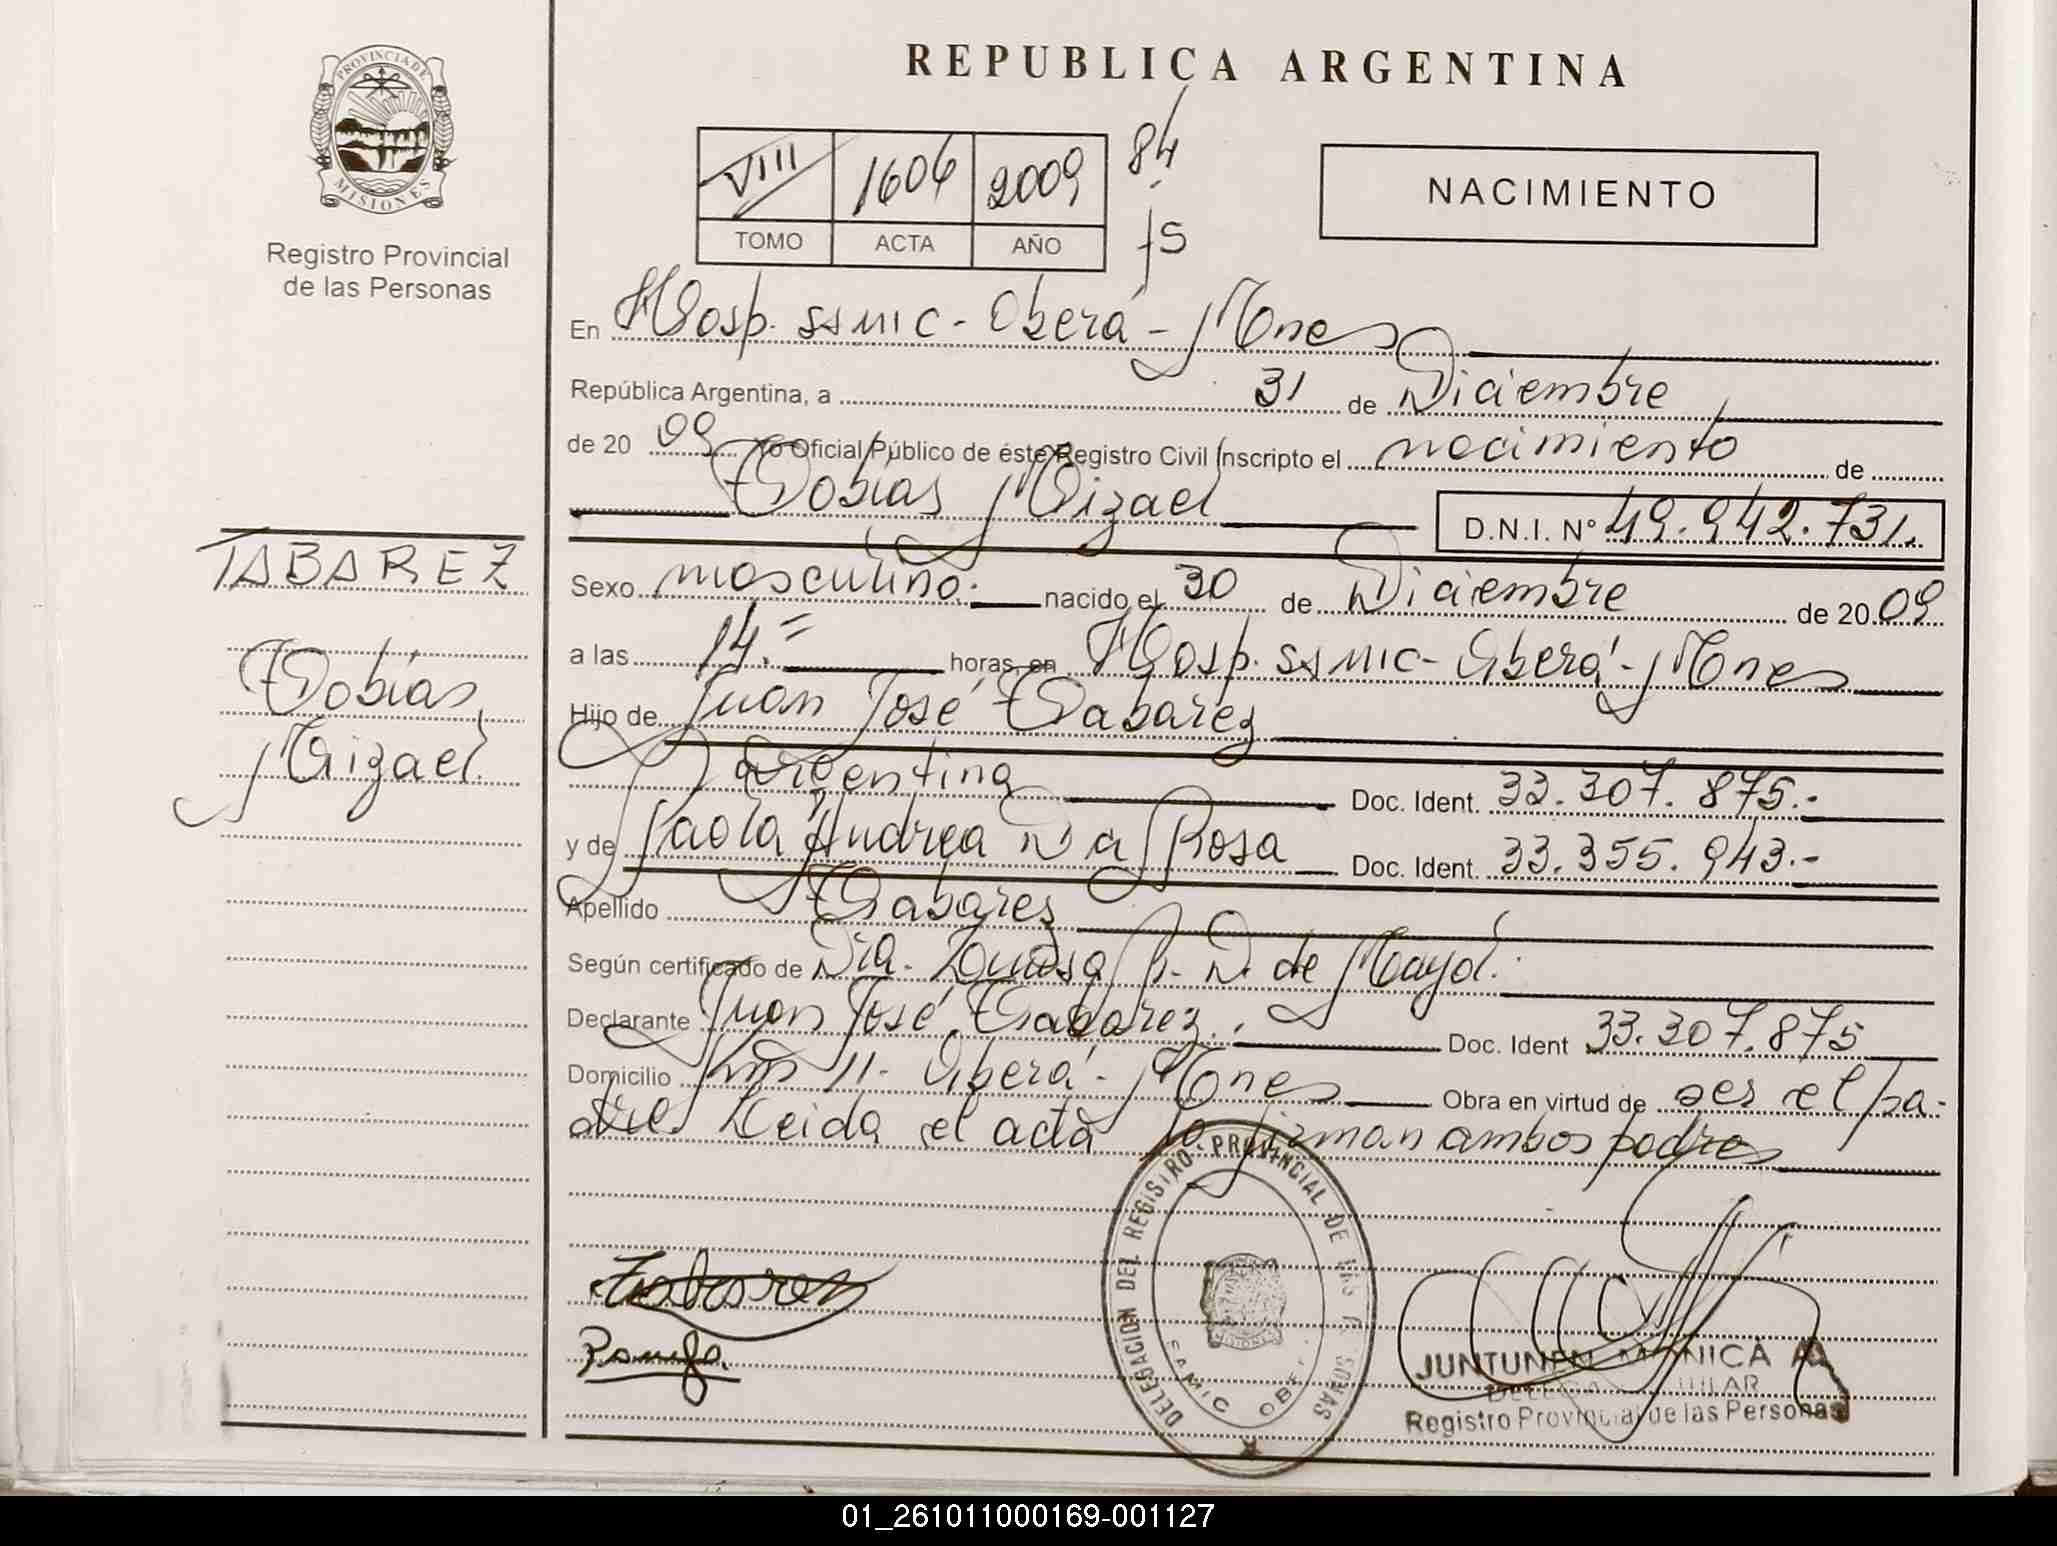 PROVINCIA DE
MISIONES
Registro Provincial
de las Personas
REPUBLICA ARGENTINA
VIII 1606 2009 84
TOMO ACTA AÑO
NACIMIENTO
En Hosp. SSMIC - Oberá - Mnes
República Argentina, a 31 de Diciembre
de 20 09 Yo Oficial Público de éste Registro Civil Inscripto el nacimiento de
Tobías Mizael D.N.I. Nº 49.942.731.
TABAREZ
Tobías
Mizael
Sexo masculino. nacido el 30 de Diciembre de 20 09
a las 14.= horas, en Hosp. SSMIC - Oberá - Mnes
Hijo de Juan José Tabarez
Argentina Doc. Ident. 33.307.875.-
y de Paola Andrea Da Rosa Doc. Ident. 33.355.943.-
Apellido Tabarez
Según certificado de Dra. de Mayol.
Declarante Juan José Tabarez. Doc. Ident 33.307.875
Domicilio Km 11 - Oberá - Mnes Obra en virtud de ser el pa-
dre. Leida el acta la firman ambos padres
Tabarez
DELEGACION DEL REGISTRO PROVINCIAL DE LAS PERSONAS
SAMIC OBERA
MISIONES
JUNTUNEN MONICA
Registro Provincial de las Personas
01_261011000169-001127